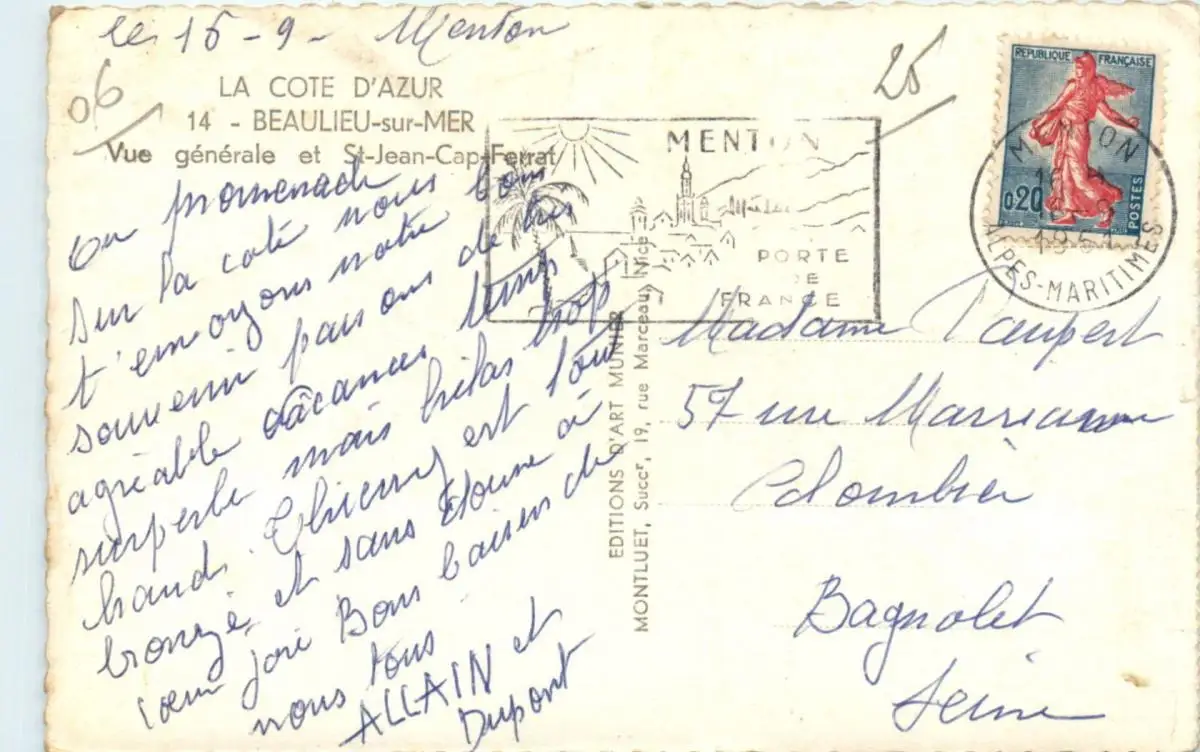 le 15-9- Menton
06
LA COTE D'AZUR
14 - BEAULIEU-sur-MER
Vue générale et St-Jean-Cap-Ferrat
promenade
Sur la coté nous
t'envoyons notre bon
souvenir passons de très
agréable vacances temps
superbe mais hélas trop
chaud. Thierry est tout
bronzé et sans donne à
cœur joie Bons baisers de
nous tous
ALLAIN et
Dupont
EDITIONS D'ART MUNIER
MONTLUET, Succr, 19, rue Marceau, Nice
25
MENTON
PORTE
DE
FRANCE
REPUBLIQUE FRANÇAISE
0,20
POSTES
MENTON
ALPES-MARITIMES
Madame
57 rue
Colombier
Bagnolet
Seine